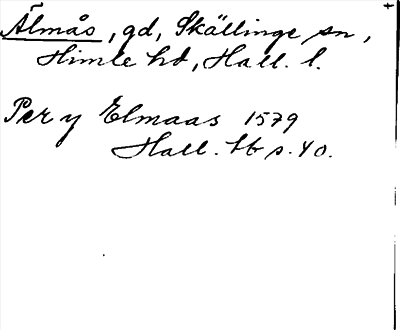 Älmås, gd, Skällinge sn,
Himle hd, Hall. l.
Per y Elmaas 1579
Hall. tb s. 40.